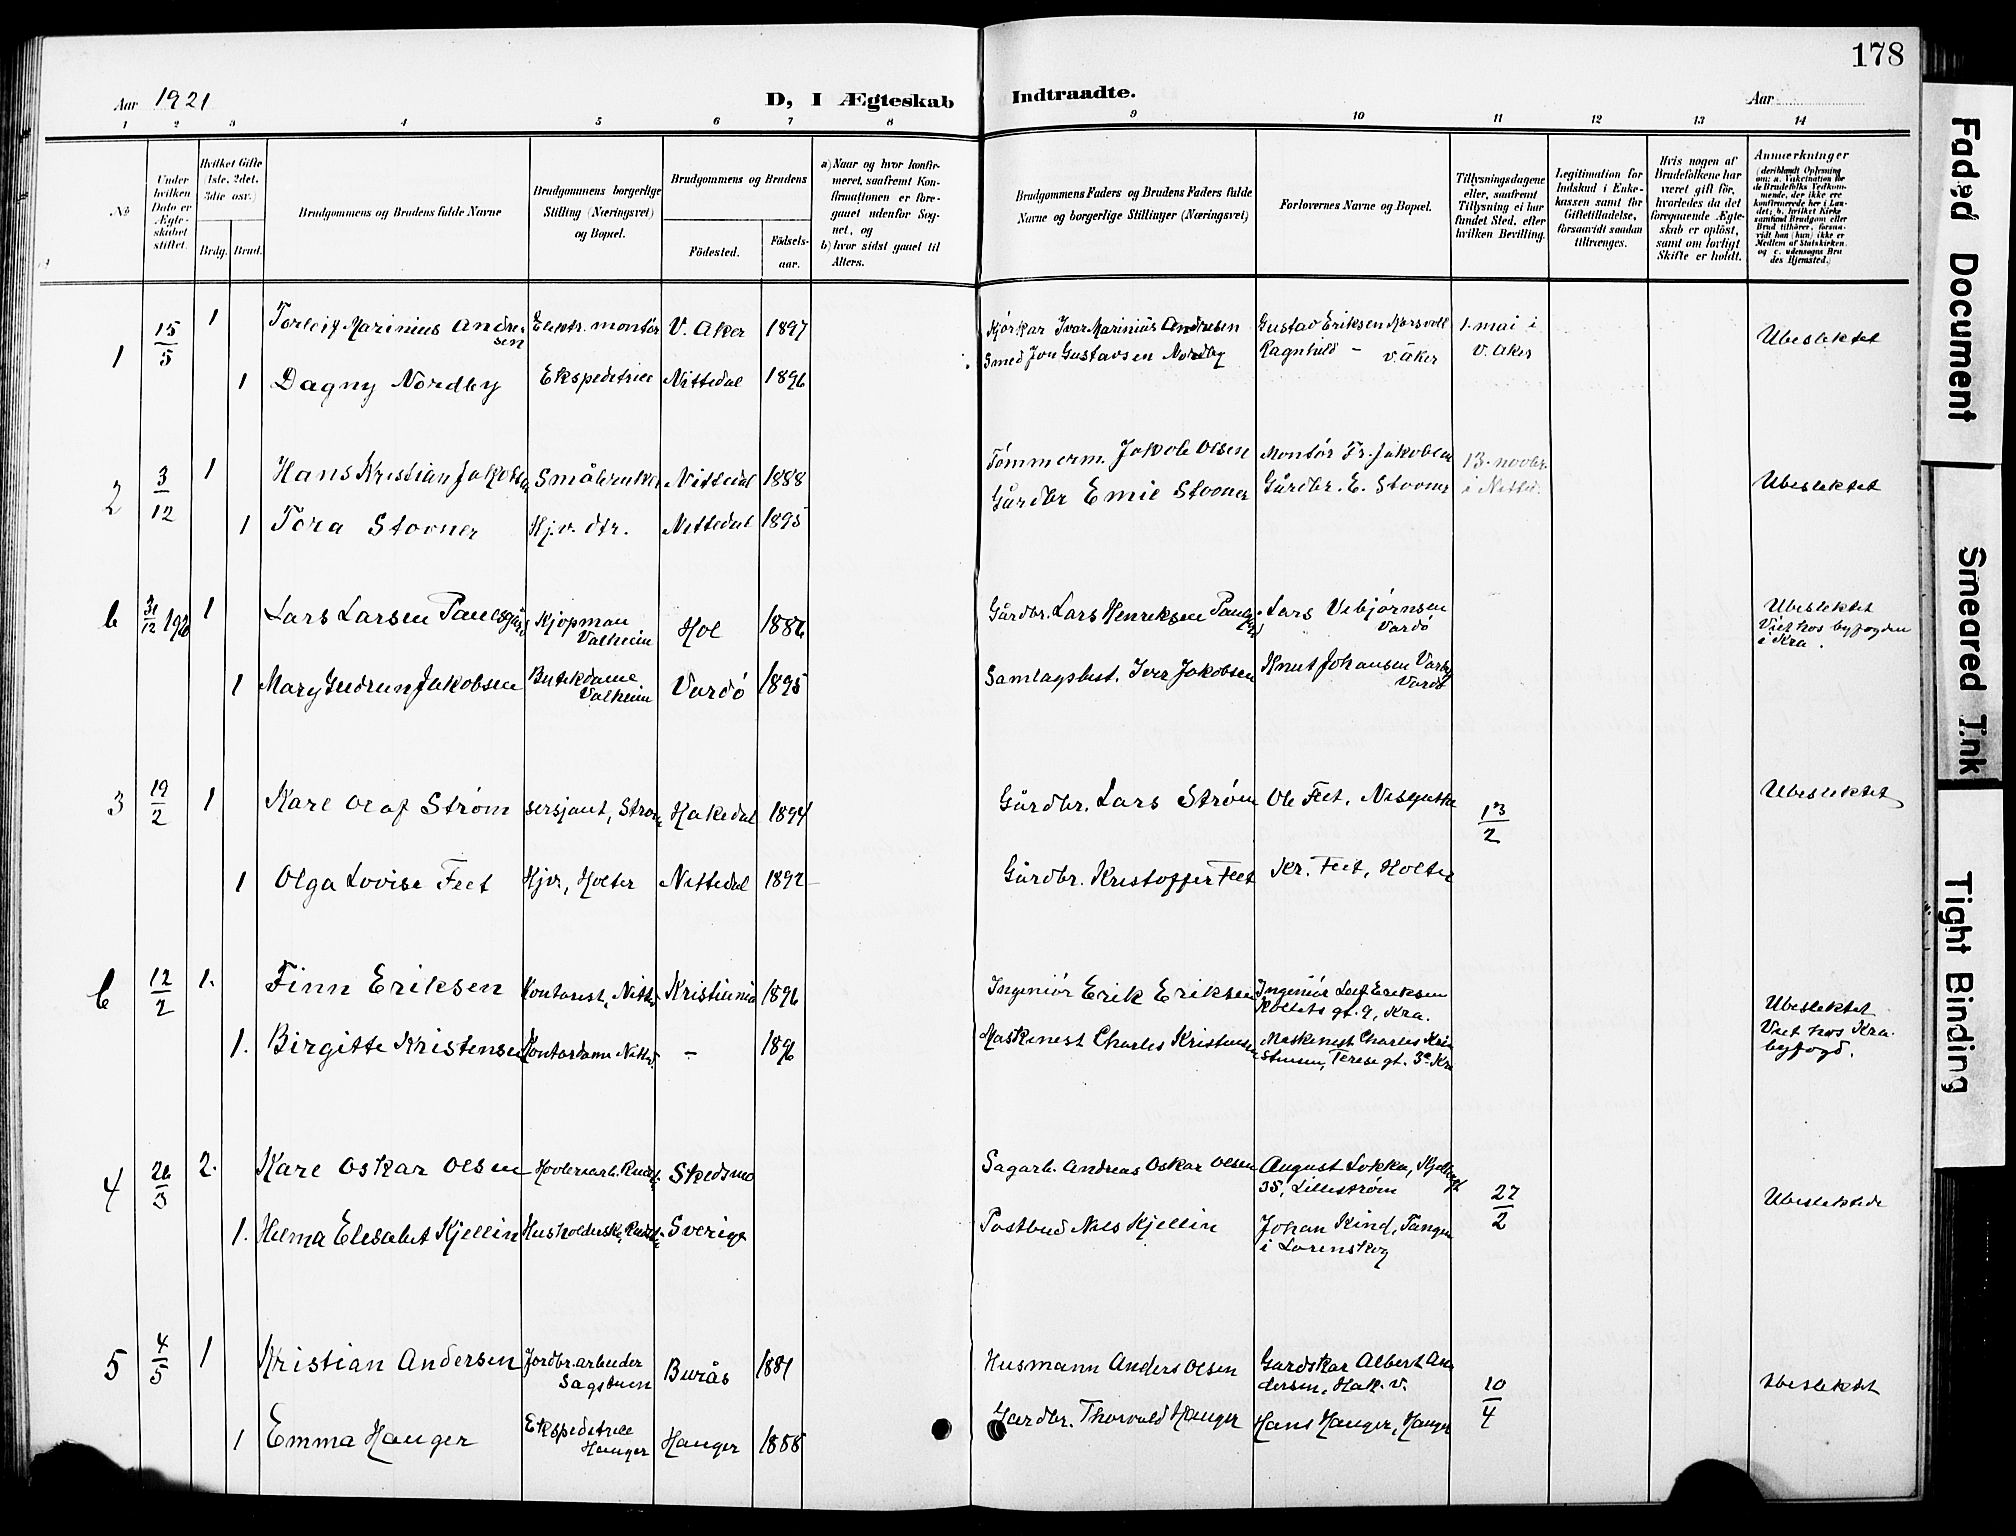 178
Aar 1921
D, I Ægteskab Indtraadte.
Aar
1 2 3 4 5 6 7 8 9 10 11 12 13 14
No
Under hvilken Dato er Ægteskabet stiftet.
Hvilket Gifte (1ste, 2det, 3die osv.)
Brdg. Brud.
Brudgommens og Brudens fulde Navne
Brudgommens borgerlige Stilling (Næringsvei) og Bopæl.
Brudgommens og Brudens
Fødested.
Fødsels-aar.
a) Naar og hvor konfirmeret, saafremt Konfirmationen er foregaaet udenfor Sognet, og
b) hvor sidst gaaet til Alters.
Brudgommens Faders og Brudens Faders fulde Navne og borgerlige Stillinger (Næringsvei)
Forlovernes Navne og Bopæl.
Tillysningsdagene eller, saafremt Tillysning ei har fundet Sted, efter hvilken Bevilling.
Legitimation for Indskud i Enkekassen samt for Giftetilladelse, forsaavidt saadan tiltrænges.
Hvis nogen af Brudefolkene har været gift før, hvorledes da det foregaaende Ægteskab er opløst, samt om lovligt Skifte er holdt.
Anmerkninger (deriblandt Oplysning om: a. Vakcination for de Brudefolks Vedkommende, der ikke ere konfirmerede her i Landet; b. hvilket Kirkesamfund Brudgom eller Brud tilhører, forsaavidt han (hun) ikke er Medlem af Statskirken, og c. udensogns Brudes Hjemsted.)
1 15/5 1 Torleif Marinius Andresen Elektr. montør V. Aker 1897 Kjørkar Ivar Marinius Andresen Gustav Eriksen Korsvoll 1. mai i V. Aker Ubeslektet
1 Dagny Nordby Ekspeditrice Nittedal 1896 Smed Jon Gustavsen Nordby Ragnhild - V. Aker
2 3/12 1 Hans Kristian Jakobsen Småbruker Nittedal 1888 Tømmerm. Jakob Olsen Montør Fr. Jakobsen 13. novbr. i Nitted. Ubeslektet
1 Tora Stovner Hj.v. dtr. Nittedal 1895 Gårdbr Emil Stovner Gårdbr. E. Stovner
b 31/12 1920 1 Lars Larsen Paulsgård Kjøpman Valheim Hol 1886 Gårdbr. Lars Henriksen Lars Vebjørnsen Vardø Ubeslektet Viet hos byfogden i Kra.
1 Mary Gudrun Jakobsen Butikdame Valheim Vardø 1895 Samlagsbest. Iver Jakobsen Knut Johansen Vardø
3 19/2 1 Karl Olaf Strøm sersjant, Strøm Hakedal 1894 Gårdbr. Lars Strøm Ole Feet, Nesgutta 13/2 Ubeslektet
1 Olga Lovise Feet Hjv., Holter Nittedal 1892 Gårdbr. Kristoffer Feet Kr. Feet, Holter
b 12/2 1. Finn Eriksen Kontorist, Nitted. Kristiania 1896 Ingeniør Erik Eriksen Ingeniør Leif Eriksen Kolletts gt. 9, Kra. Ubeslektet Viet hos Kra. byfogd.
1. Birgitte Kristensen Kontordame Nitted. - 1896 Maskinist Charles Kristensen Maskinist Charles Kristensen, Terese gt. 3a Kra
4 26/3 2. Karl Oskar Olsen Høvleriarb. Skedsmo Sagarb. Andreas Oskar Olsen August Løkka, 35, Lillestrøm 27/2 Ubeslektede
1. Helma Elisabet Kjellin Husholderske, Sverige Postbud Nils Kjellin Johan Kind, Tangen i Lørenskog
5 4/5 1 Kristian Andersen Jordbr.arbeider Sagstuen Burås 1881 Husmann Anders Olsen Gardskar Albert Andersen, Hak. v. 10/4 Ubeslektet
1 Emma Hauger Ekspeditrice Hauger Hauger 1888 Gardbr. Thorvald Hauger Hans Hauger, Hauger
Faded Document
Smeared Ink
Tight Binding